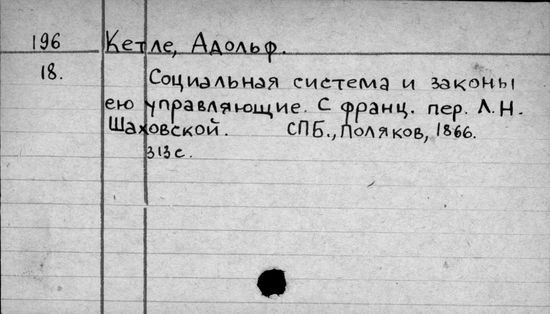 196 Кетле, Адольф.
18. Социальная система и законы
ею управляющие. С франц. пер. Л. Н.
Шаховской. СПБ., Поляков, 1866.
313 с.